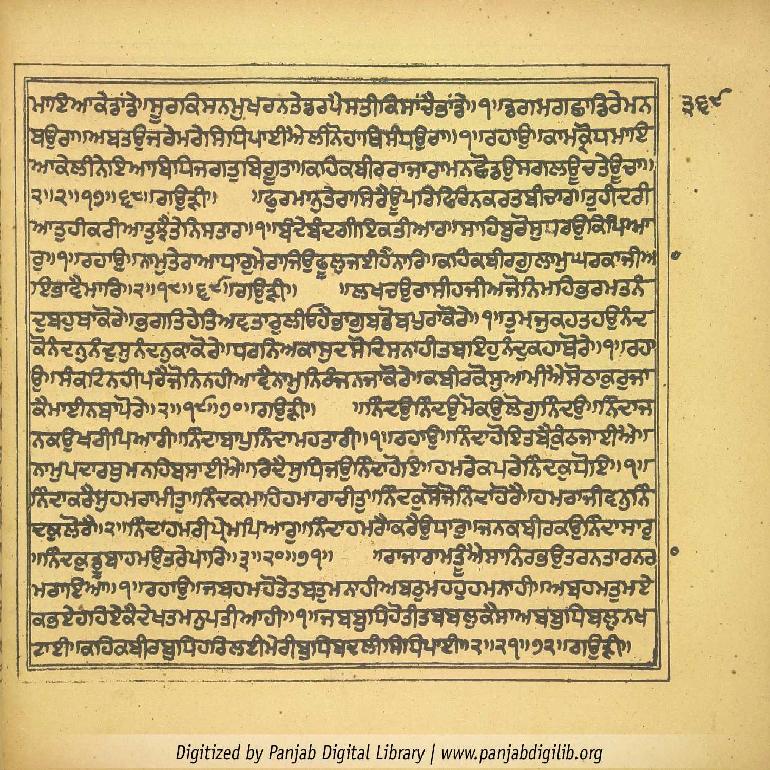 ਮਾਇਆਕੇਡਾਂਡੇ॥ਸੂਰਾਕਿਸਨਮੁਖਰਨਤੇਡਰਪੈਸਤੀਕਿਸਾਂਚੈਭਾਂਡੇ॥੧॥ਡਗਮਗਛਾਡਿਰੇਮਨ
੩੬੯
ਬਉਰਾ॥ਅਬਤਉਜਰੇਮਰੇਸਿਧਿਪਾਈਐਲੀਨੋਹਾਥਿਸੰਧਉਰਾ॥੧॥ਰਹਾਉ॥ਕਾਮਕ੍ਰੋਧਮਾਇ
ਆਕੇਲੀਨੇਇਆਬਿਧਿਜਗਤੁਬਿਗੂਤਾ॥ਕਹਿਕਬੀਰਰਾਜਾਰਾਮਨਛੋਡਉਸਗਲਊਚਤੇਊਚਾ॥
੨॥੨॥੧੭॥੬੮॥ਗਉੜੀ॥ ॥ਫੁਰਮਾਨੁਤੇਰਾਸਿਰੈਊਪਰਿਫਿਰਿਨਕਰਤਬੀਚਾਰ॥ਤੁਹੀਦਰੀ
ਆਤੁਹੀਕਰੀਆਤੁਝੈਤੇਨਿਸਤਾਰ॥੧॥ਬੰਦੇਬੰਦਗੀਇਕਤੀਆਰ॥ਸਾਹਿਬੁਰੋਸੁਧਰਉਕਿਪਿਆ
ਰੁ॥੧॥ਰਹਾਉ॥ਨਾਮੁਤੇਰਾਆਧਾਰੁਮੇਰਾਜਿਉਫੂਲੁਜਈਹੈਨਾਰਿ॥ਕਹਿਕਬੀਰਗੁਲਾਮੁਘਰਕਾਜੀਅ
ਾਇਭਾਵੈਮਾਰਿ॥੨॥੧੮॥੬੯॥ਗਉੜੀ॥ ॥ਲਖਚਉਰਾਸੀਹਜੀਅਜੋਨਿਮਹਿਭ੍ਰਮਤਨੰ
ਦੁਬਹੁਥਾਕੋਰੇ॥ਭਗਤਿਹੇਤਿਅਵਤਾਰੁਲੀਓਹੈਭਾਗੁਬਡੋਬਪੁਰਾਕੋਰੇ॥੧॥ਤੁਮਜੁਕਹਤਹਉਨੰਦ
ਕੋਨੰਦਨੁਨੰਦਸੁਨੰਦਨੁਕਾਕੋਰੇ॥ਧਰਨਿਅਕਾਸੁਦਸੋਦਿਸਨਾਹੀਤਬਇਹੁਨੰਦੁਕਹਾਥੋਰੇ॥੧॥ਰਹਾ
ਉ॥ਸੰਕਟਿਨਹੀਪਰੈਜੋਨਿਨਹੀਆਵੈਨਾਮੁਨਿਰੰਜਨਜਾਕੋਰੇ॥ਕਬੀਰਕੋਸੁਆਮੀਐਸੋਠਾਕੁਰੁਜਾ
ਕੈਮਾਈਨਬਾਪੋਰੇ॥੨॥੧੯॥੭੦॥ਗਉੜੀ॥ ॥ਨਿੰਦਉਨਿੰਦਉਮੋਕਉਲੋਗੁਨਿੰਦਉ॥ਨਿੰਦਾਜ
ਨਕਉਖਰੀਪਿਆਰੀ॥ਨਿੰਦਾਬਾਪੁਨਿੰਦਾਮਹਤਾਰੀ॥੧॥ਰਹਾਉ॥ਨਿੰਦਾਹੋਇਤਬੈਕੁੰਠਜਾਈਐ॥
ਨਾਮੁਪਦਾਰਥੁਮਨਹਿਬਸਾਈਐ॥ਰਿਦੈਸੁਧਜਉਨਿੰਦਾਹੋਇ॥ਹਮਰੇਕਪਰੇਨਿੰਦਕੁਧੋਇ॥੧॥
ਨਿੰਦਾਕਰੈਸੁਹਮਰਾਮੀਤੁ॥ਨਿੰਦਕਮਾਹਿਹਮਾਰਾਚੀਤੁ॥ਨਿੰਦਕੁਸੋਜੋਨਿੰਦਾਹੋਰੈ॥ਹਮਰਾਜੀਵਨੁਨਿੰ
ਦਕੁਲੋਰੈ॥੨॥ਨਿੰਦਾਹਮਰੀਪ੍ਰੇਮਪਿਆਰੁ॥ਨਿੰਦਾਹਮਰਾਕਰੈਉਧਾਰੁ॥ਜਨਕਬੀਰਕਉਨਿੰਦਾਸਾਰੁ
॥ਨਿੰਦਕੁਡੂਬਾਹਮਉਤਰੇਪਾਰਿ॥੩॥੨੦॥੭੧॥ ॥ਰਾਜਾਰਾਮਤੂੰਐਸਾਨਿਰਭਉਤਰਨਤਾਰਨਰ
ਮਰਾਇਆ॥੧॥ਰਹਾਉ॥ਜਬਹਮਹੋਤੇਤਬਤੁਮਨਾਹੀਅਬਤੁਮਹਹੁਹਮਨਾਹੀ॥ਅਬਹਮਤੁਮਏ
ਕਭਏਹਹਿਏਕੈਦੇਖਤਮਨੁਪਤੀਆਹੀ॥੧॥ਜਬਬੁਧਿਹੋਤੀਤਬਬਲੁਕੈਸਾਅਬਬੁਧਿਬਲੁਨਖ
ਟਾਈ॥ਕਹਿਕਬੀਰਬੁਧਿਹਰਿਲਈਮੇਰੀਬੁਧਿਬਦਲੀਸਿਧਿਪਾਈ॥੨॥੨੧॥੭੨॥ਗਉੜੀ॥
Digitized by Panjab Digital Library | www.panjabdigilib.org